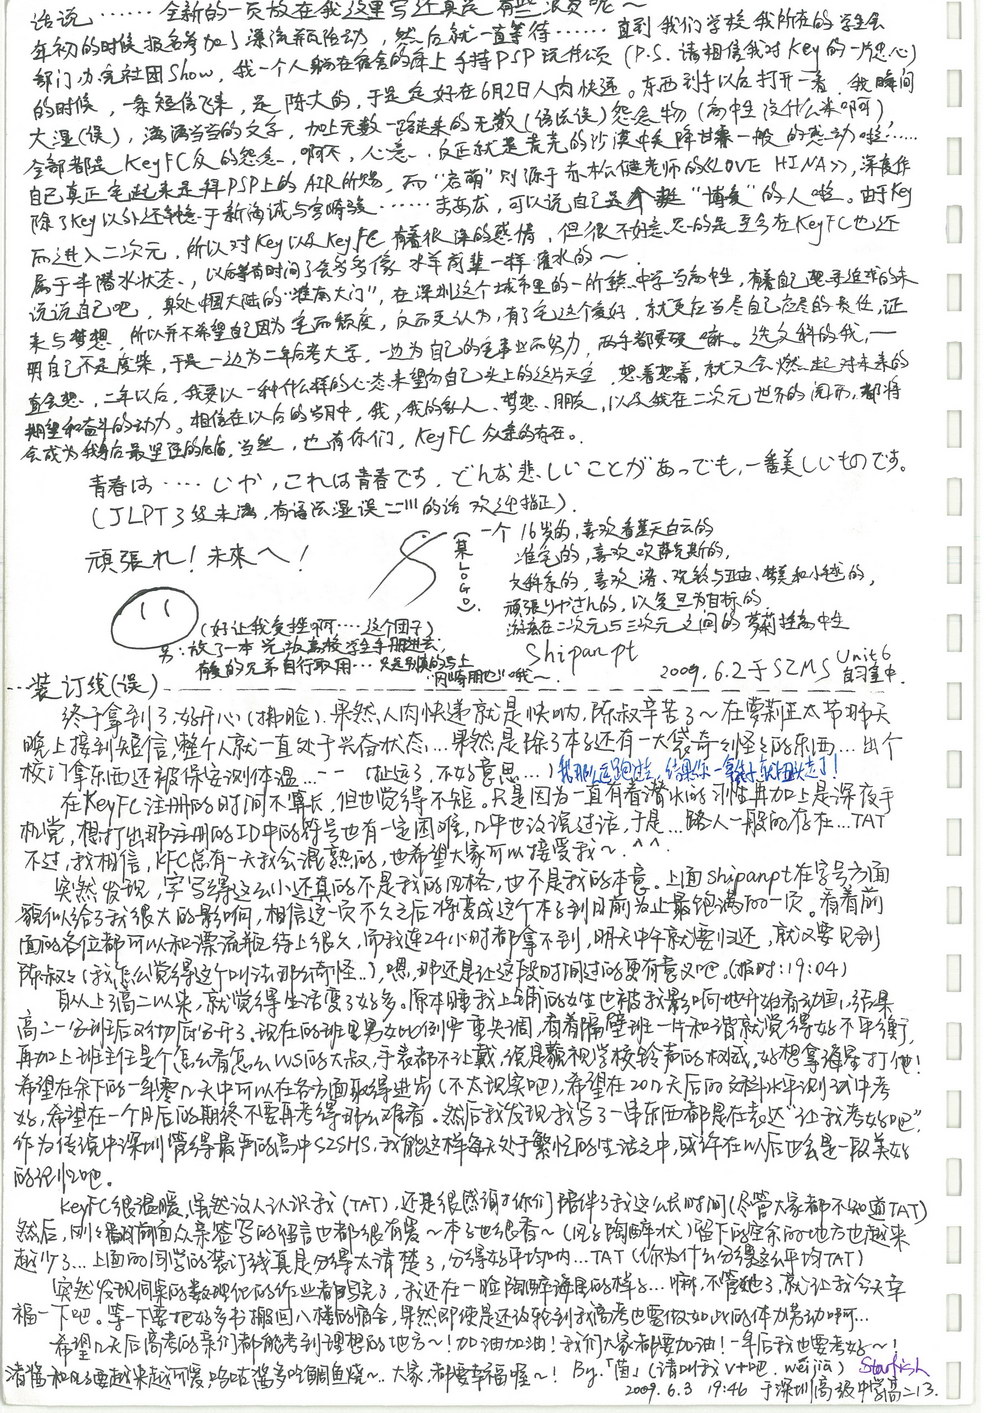 话说……全新的一页放在我这里写还真是有些浪费呢～
年初的时候报名参加了漂流瓶活动，然后就一直等待……直到我们学校我所在的学生会
部门办完社团Show，我一个人躺在宿舍的床上手持PSP玩 (P.S. 请相信我对Key的一片忠心)
的时候，一条短信飞来，是陈大的，于是定好在6月2日人肉快递。东西到手以后打开一看，我瞬间
大湿(误)，满满当当的文字，加上无数一路走来的无数(语法误)怨念物(高中生没什么来啊)，
全部都是KeyFC众的怨念，啊不，心意，反正就是荒芜的沙漠中天降甘霖一般的感动啦……
自己真正宅起来是拜PSP上的AIR所赐，而“启萌”则源于赤松健老师的《LOVE HINA》，深度作
除了Key以外还钟意于新海诚与宫崎骏……まあね，可以说自己是个挺“博爱”的人啦。由于Key
而进入二次元，所以对Key以及KeyFC有着很深的感情，但很不好意思的是至今在KeyFC也还
属于半潜水状态，以后等有时间了会多多像水羊前辈一样灌水的～
说说自己吧，身处中国大陆的“淮南大门”，在深圳这个城市里的一所中学当高中生，有着自己想寻追求的未
来与梦想，所以并不希望自己因为宅而颓废，反而更认为，有了宅这个爱好，就更应当尽自己应尽的责任，证
明自己不是废柴，于是一边为二年后考大学，一边为自己的宅事业而努力，两手都要硬嘛。选文科的我，一
直会想，二年以后，我要以一种什么样的心态来望向自己头上的这片天空，想着想着，就又会燃起对未来的
期望和奋斗的动力。相信在以后的岁月中，我，我的家人、梦想、朋友，以及我在二次元世界的同好，都将
会成为我身后最坚强的后盾，当然，也有你们，KeyFC众亲的存在。
青春は……しか，これは青春です，どんな悲しいことがあっても，一番美しいものです。
(JLPT3级未满，有语法湿误二川的话 欢迎指正)
頑張れ！未来へ！
(某LOGO)
一个16岁的，喜欢看蓝天白云的
准宅的，喜欢吹萨克斯的，
文科系的，喜欢渚、观铃与亚由、梦美和小毬的，
頑張りやさんの，以复旦为目标的
游走在二次元与三次元之间的萝莉控高中生
(好让我受挫啊……这个团子)
另：放了一本完全版高校学生手册进去，
有爱的兄弟自行取用…只是别真的写上
“冈崎朋也”哦～
Shipanpt
2009.6.2于SZMS Unit6 自习室中
…装订线(误)
终于拿到了，好开心(拂脸)。果然人肉快递就是快呐，陈叔辛苦了～在萝莉正太节那天
晚上接到短信，整个人就一直处于兴奋状态……果然是除了本子还有一大袋奇怪的东西…出个
校门拿东西还被保安测体温……一一 (扯远了，不好意思…) 我那么远跑过去，结果你一拿袋子就扭头走了！
在KeyFC注册的时间不算长，但也觉得不短。只是因为一直有着潜水的习惯再加上是深夜手
机党，想打出那注册的ID中的符号也有一定困难，几乎也没说过话，于是…路人一般的存在…TAT
不过，我相信，KFC总有一天我会混熟的，也希望大家可以接受我～。^^.
突然发现，字写得这么小还真的不是我的风格，也不是我的本意。上面shipanpt在字号方面
貌似给了我很大的影响，相信这一页不久之后将变成这个本子到目前为止最饱满的一页。看着前
面的各位都可以和漂流瓶待上很久，而我连24小时都拿不到，明天中午就要归还，就又要见到
陈叔叔(我怎么觉得这个叫法那么奇怪…)，嗯，那还是让这段时间过的更有意义吧。(报时：19:04)
自从上了高二以来，就觉得生活变了好多。原本睡我上铺的女生也被我影响地开始看动画，结果
高二一分班后又匆匆后分开了。现在的班里男女比例严重失调，看着隔壁班一片和谐就觉得好不平衡，
再加上班主任是个怎么看怎么WS的大叔，手表都不让戴，说是藐视学校铃声的权威，好想拿海星打他！
希望在余下的一年零几天中可以在各方面取得进步(不太现实吧)，希望在20几天后的文科水平测试中考
好，希望在一个月后的期终不要再考得那么难看。然后我发现我写了一串东西都是在表达“让我考好吧”，
作为传说中深圳管得最严的高中SZSHS，我能这样每天处于繁忙的生活之中，或许在以后也会是一段美好
的记忆吧。
KeyFC很温暖，虽然没人认识我(TAT)，还是很感谢你们陪伴了我这么长时间(尽管大家都不知道TAT)
然后，刚才翻前面众亲签写的留言也都很有爱～本子也很香～(风子陶醉状)留下的空余的地方也越来
越少了…上面的同学的装订线真是分得太清楚了，分得好平均呐…TAT(你为什么分得这么平均TAT)
突然发现同桌的数理化的作业都写完了，我还在一脸陶醉海星的样子…嘛，不管她了，就让我今天幸
福一下吧。等一下要把好多书搬回八楼的宿舍，果然即使是还没轮到我高考也要做如此的体力劳动啊…
希望几天后高考的亲们都能考到理想的地方～！加油加油！我们大家都要加油！一年后我也要考好～！
渚酱和风子要越来越可爱，哈古酱多吃鲷鱼烧～。大家，都要幸福喔～！By.「茵」(请叫我v+吧．weijia) Starfish
2009.6.3 19:46 于深圳高级中学高二13.